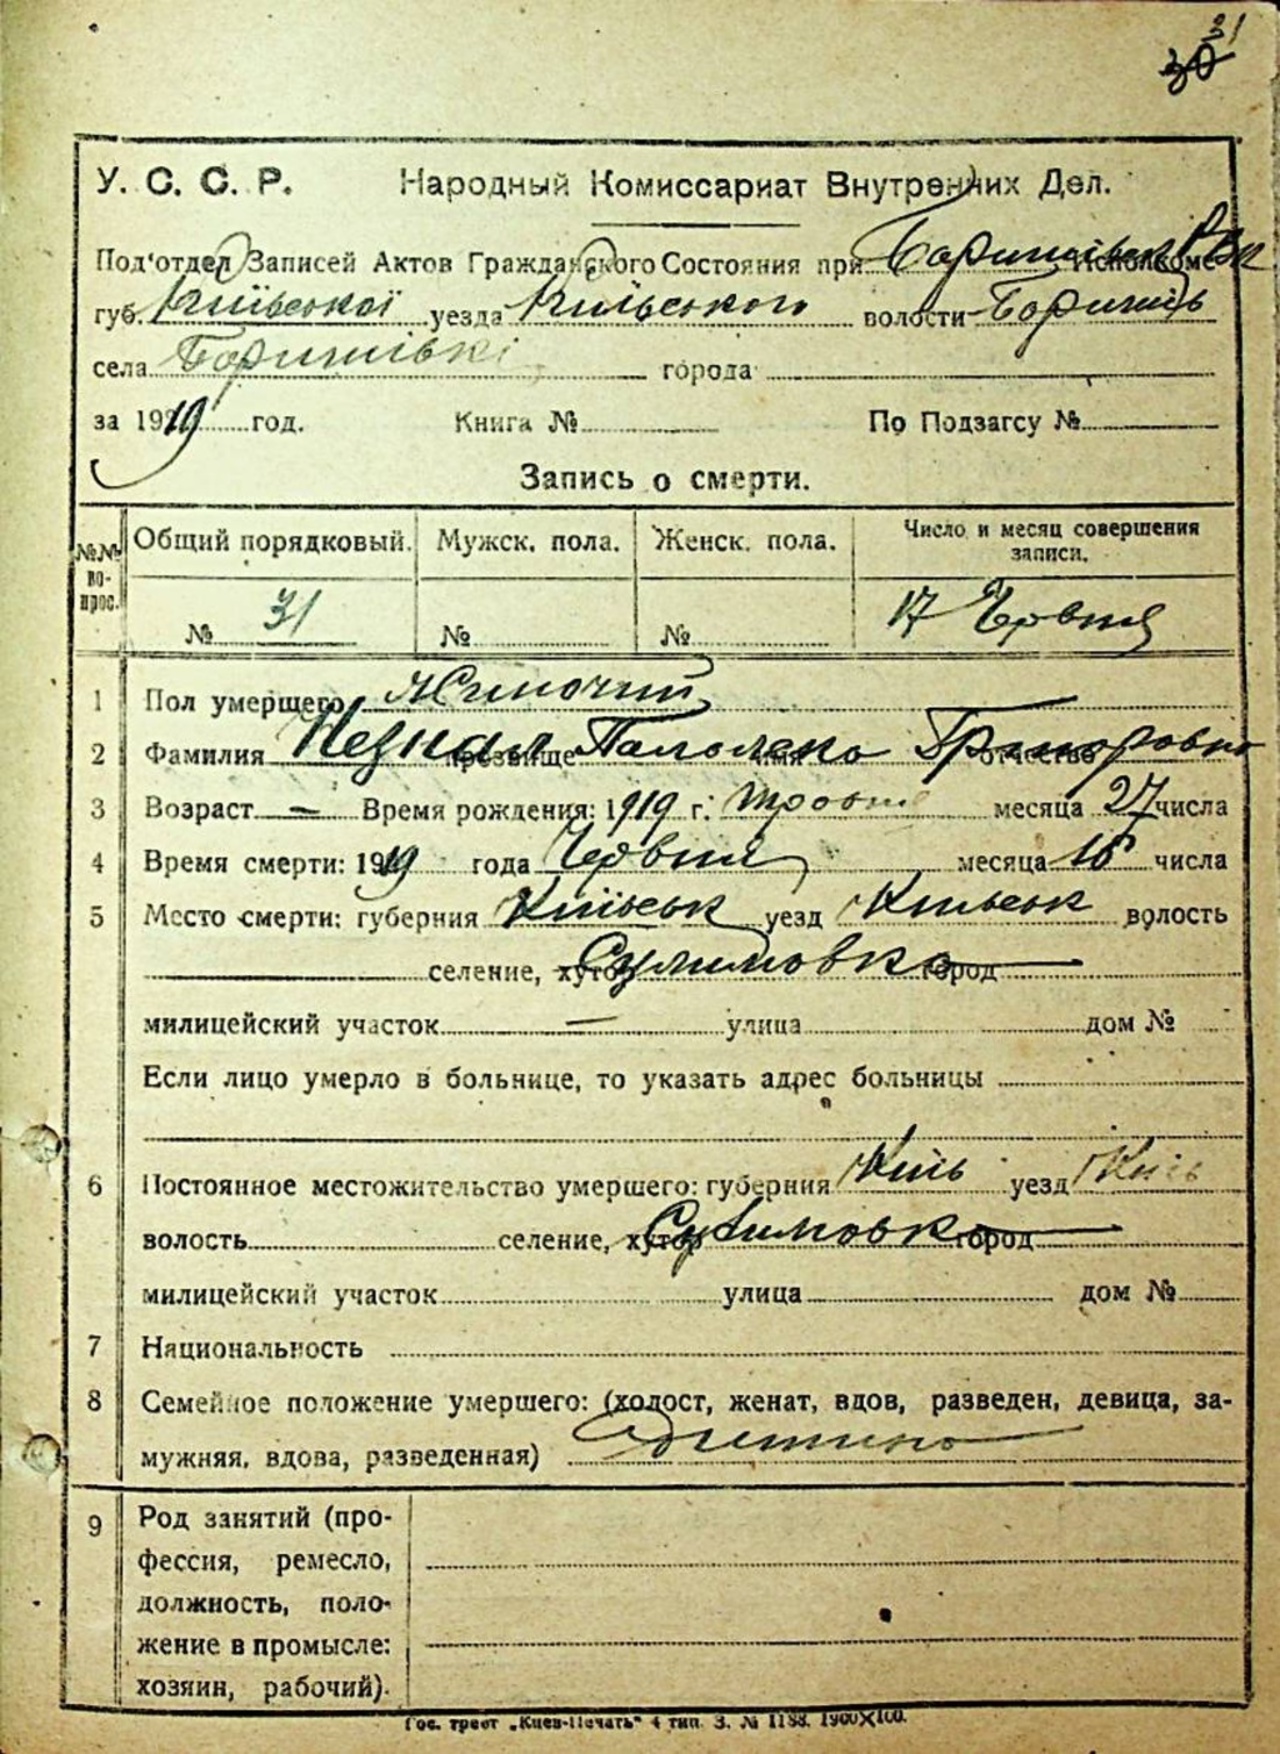 31
30
У. С. С. Р. Народный Комиссариат Внутренних Дел.
Под'отдел Записей Актов Гражданского Состояния при Исполкоме
губ. Київської уезда Київського волости
села Баришівкі города
за 1919 год. Книга № По Подзагсу №
Запись о смерти.
№№ вопрос. Общий порядковый. Мужск. пола. Женск. пола. Число и месяц совершения записи.
№ 31 № № 17 Червня
1 Пол умершего Жиночий
2 Фамилия прозвище имя отчество
3 Возраст — Время рождения: 1919 г. травня месяца 27 числа
4 Время смерти: 1919 года Червня месяца 16 числа
5 Место смерти: губерния Київськ уезд Київськ волость
селение, хутор Сулимовка город
милицейский участок — улица дом №
Если лицо умерло в больнице, то указать адрес больницы
6 Постоянное местожительство умершего: губерния Київ уезд Київ
волость селение, хутор Сулимовка город
милицейский участок улица дом №
7 Национальность
8 Семейное положение умершего: (холост, женат, вдов, разведен, девица, за-
мужняя, вдова, разведенная) Дитина
9 Род занятий (про-
фессия, ремесло,
должность, поло-
жение в промысле:
хозяин, рабочий).
Гос. трест „Киев-Печать" 4 тип. З. № 1188. 1900×100.